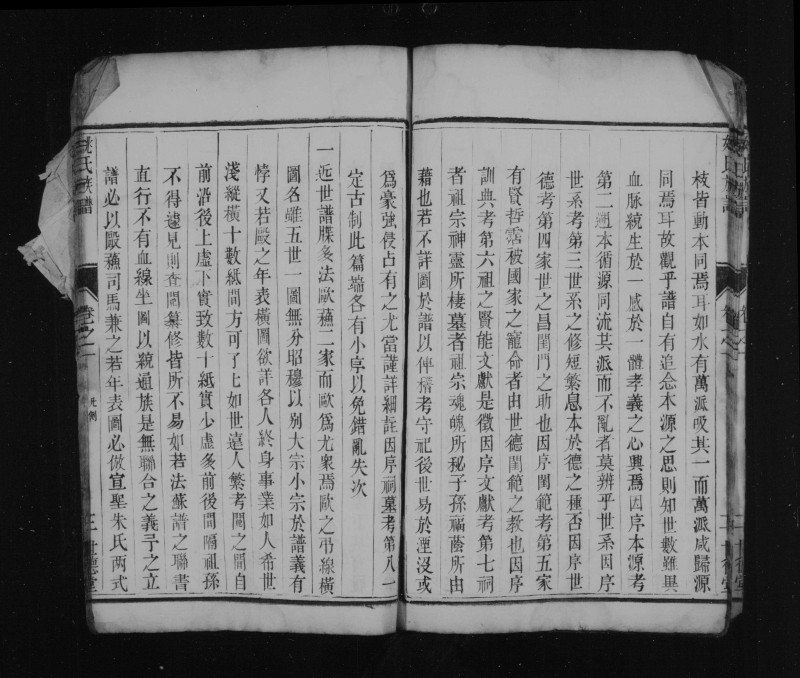 枝皆動本同焉耳如水有萬派吸其一而萬派咸歸源
同焉耳故觀乎譜自有追念本源之思則知世數雖異
血脉統生於一感於一體孝義之心興焉因序本源考
第二遡本循源同流共派而不亂者莫辨乎世系因序
世系考第三世系之修短繁息本於德之種否因序世
德考第四家世之昌閨門之助也因序閨範考第五家
有賢哲霑被國家之寵命者由世德閨範之教也因序
訓典考第六祖之賢能文獻是徵因序文獻考第七祠
者祖宗神靈所棲墓者祖宗魂魄所秘子孫福蔭所由
藉也若不詳圖於譜以俾稽考守祀後世易於湮沒或
爲豪強侵占有之尤當謹詳細註因序祠墓考第八一
定古制此篇端各有小序以免錯亂失次
一近世譜牒多法歐蘓二家而歐爲尤衆焉歐之弔線橫
圖各雖五世一圖無分昭穆以别大宗小宗於譜義有
悖又若毆之年表橫圖欲詳各人終身事業如人希世
淺縱橫十數紙間方可了七如世遠人繁考閱之間自
前沿後上虛下實致數十紙實少虛多前後間隔祖孫
不得遠見則查閱纂修皆所不易如若法蘇譜之聯書
直行不有血線坐圖以統通族是無聯合之義予之立
譜必以毆蘓司馬兼之若年表圖必倣宣聖朱氏两式
姚氏族譜
卷之一
凡例
二
世德堂